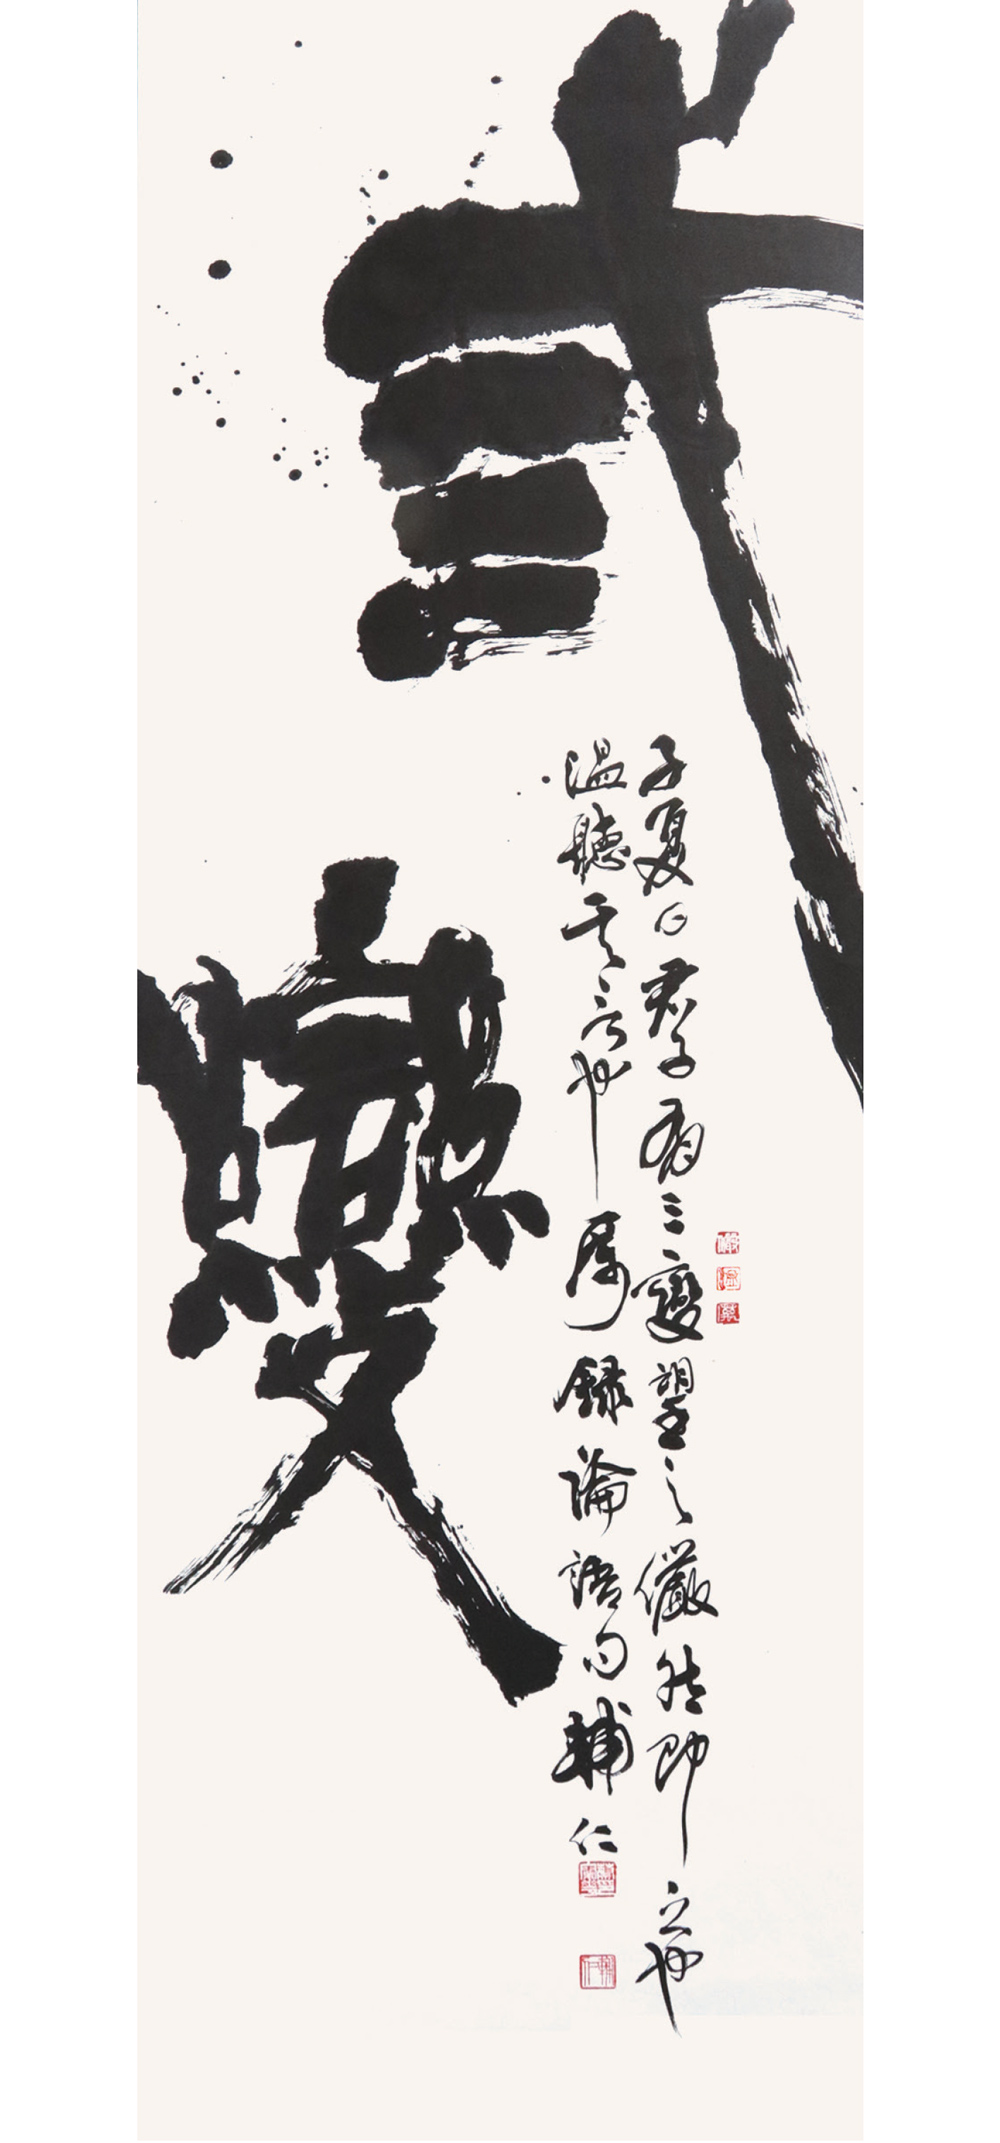 弎變
子夏曰君子有三變望之儼然即之也
溫聽其言也厲錄論語句輔仁